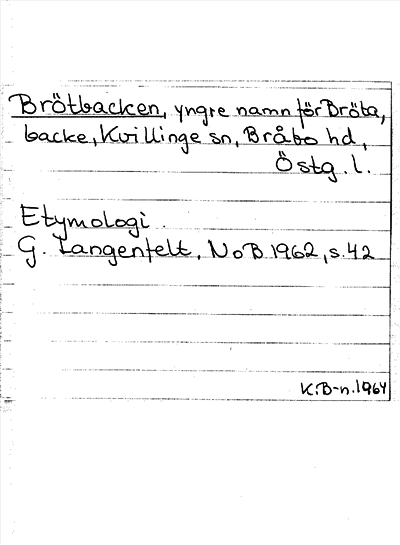 Brötbacken, yngre namn för Bröta,
backe, Kvillinge sn, Bråbo hd,
Östg. l.
Etymologi.
G. Langenfelt, NoB 1962, s. 42
K.B-n. 1964